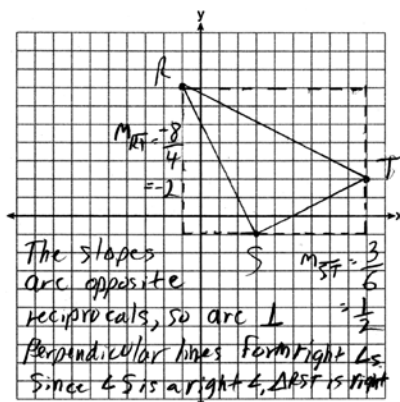 y
R
m_RT = -8/4
= -2
T
x
S
m_ST = 3/6
= 1/2
The slopes
are opposite
reciprocals, so are ⊥
Perpendicular lines form right ∠s.
Since ∠S is a right ∠, ΔRST is right